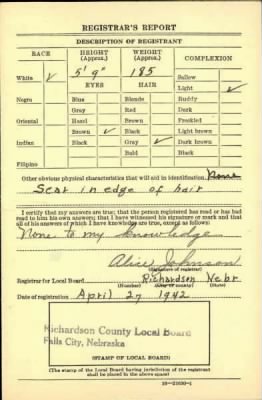 REGISTRAR'S REPORT
DESCRIPTION OF REGISTRANT
RACE HEIGHT (Approx.) WEIGHT (Approx.) COMPLEXION
White ✓ 5' 9" 185 Sallow
Light ✓
EYES HAIR
Negro Blue Blonde Ruddy
Gray Red Dark
Oriental Hazel Brown Freckled
Brown ✓ Black Light brown
Indian Black Gray ✓ Dark brown
Bald Black
Filipino
Other obvious physical characteristics that will aid in identification None
Scar in edge of hair
I certify that my answers are true; that the person registered has read or has had
read to him his own answers; that I have witnessed his signature or mark and that
all of his answers of which I have knowledge are true, except as follows:
None to my knowledge
Alice Johnson
(Signature of registrar)
Registrar for Local Board Richardson Nebr.
(Number) (City or county) (State)
Date of registration April 27 1942
Richardson County Local Board
Falls City, Nebraska
(STAMP OF LOCAL BOARD)
(The stamp of the Local Board having jurisdiction of the registrant
shall be placed in the above space)
16—21630-1